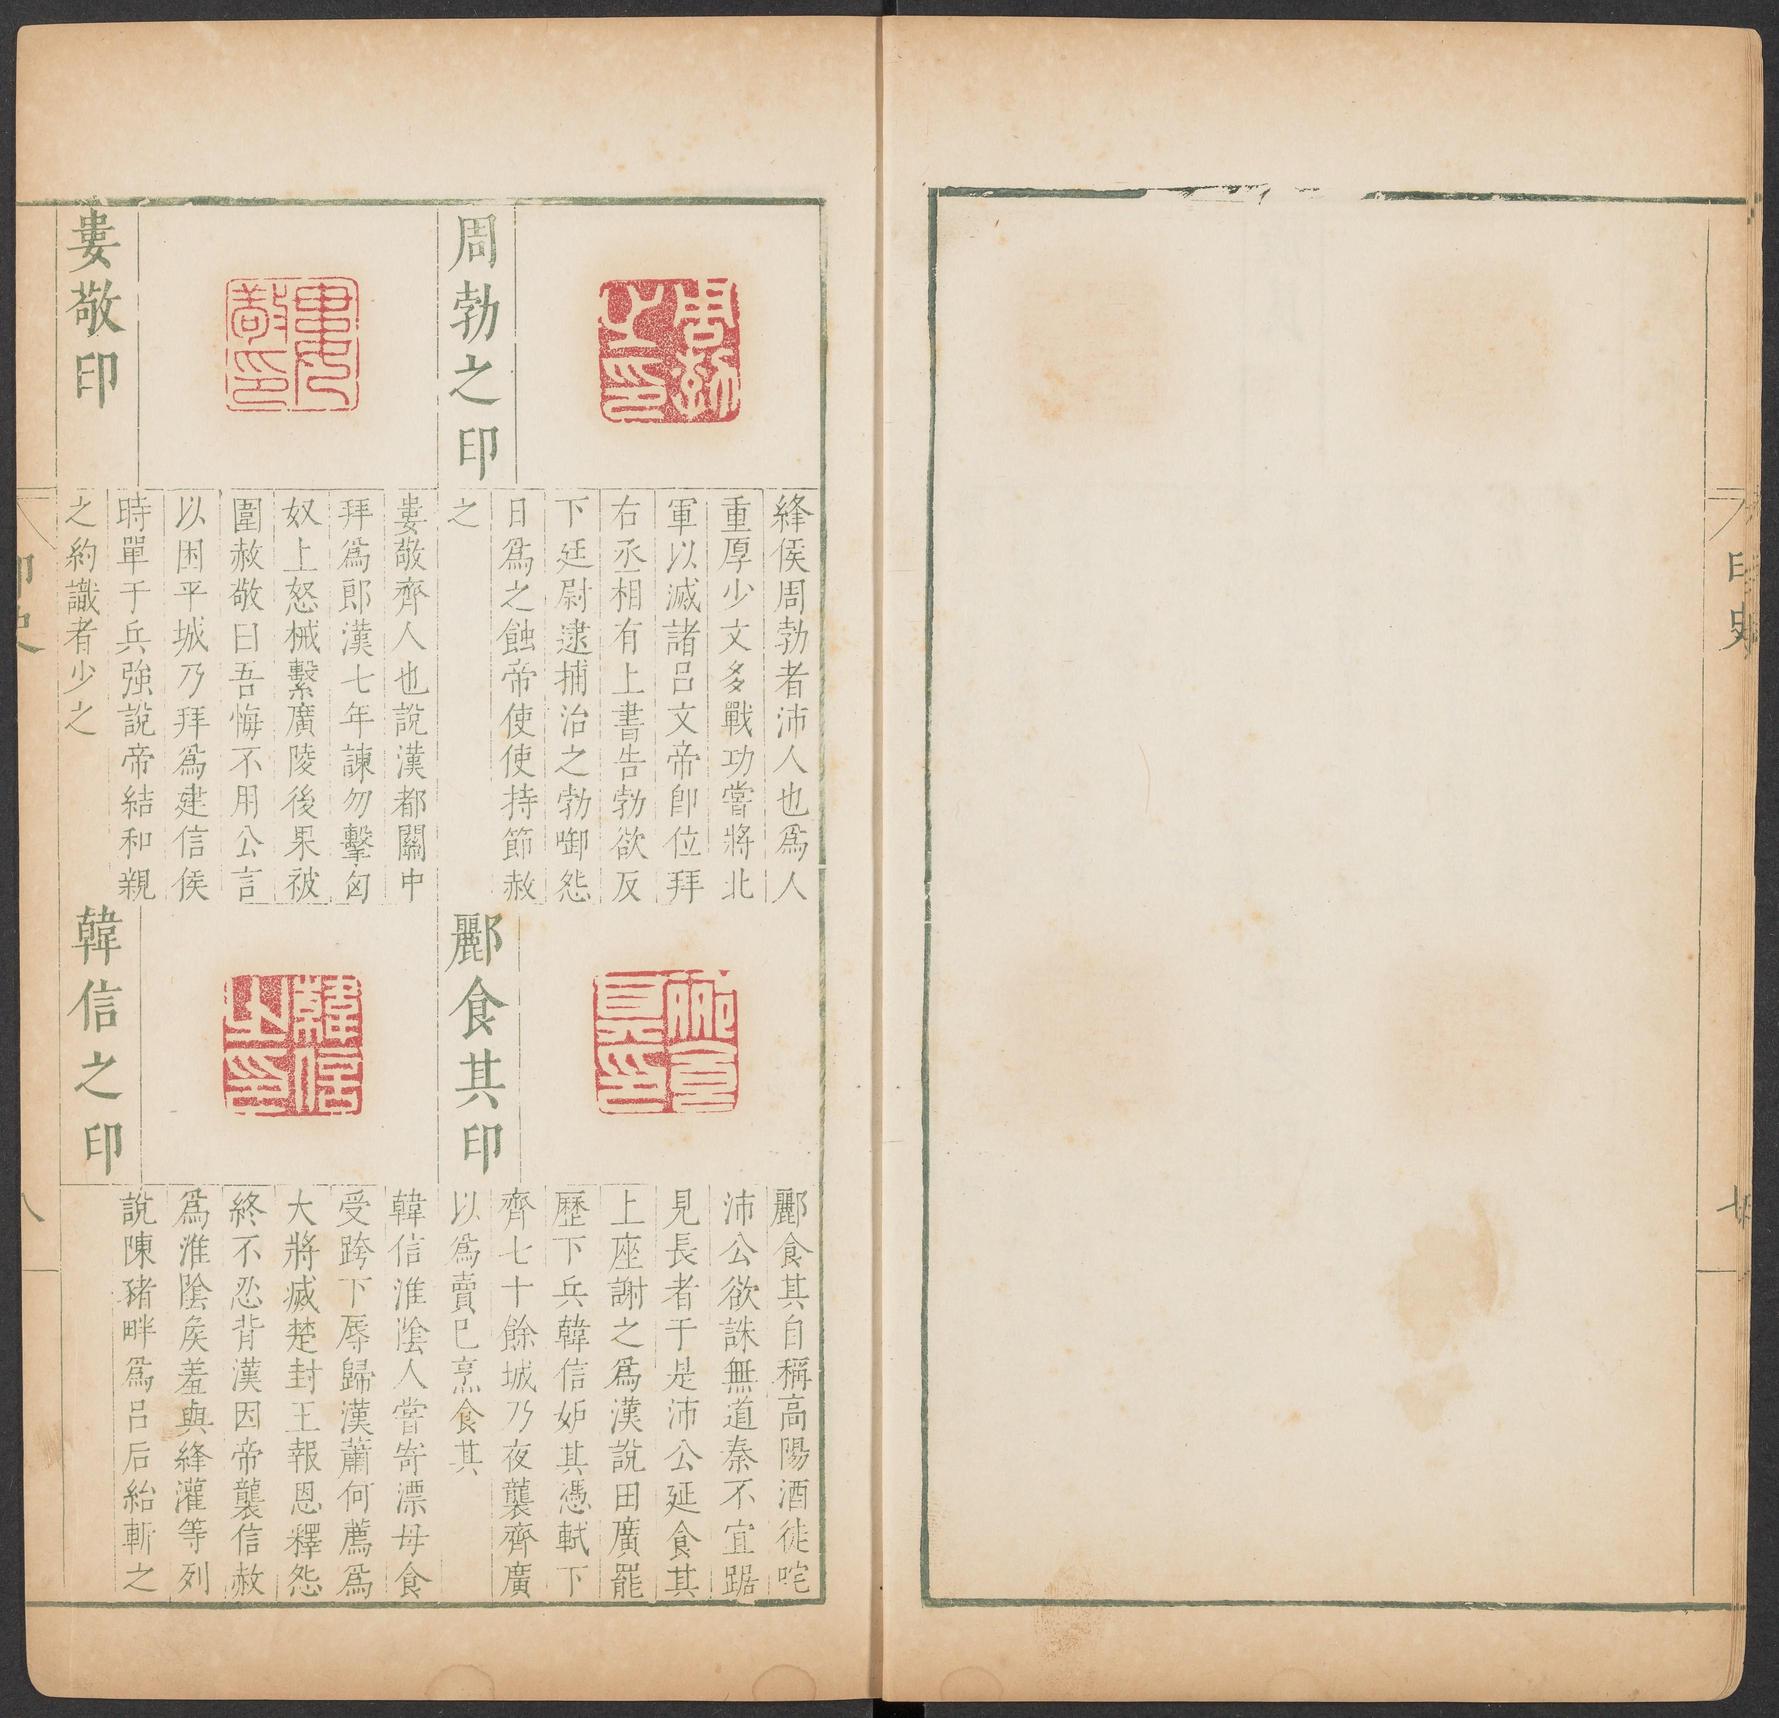 印史
周勃之印
絳侯周勃者沛人也爲人
重厚少文多戰功嘗將北
軍以滅諸呂文帝即位拜
右丞相有上書告勃欲反
下廷尉逮捕治之勃啣怨
日爲之蝕帝使使持節赦
之
婁敬印
婁敬齊人也說漢都關中
拜爲郎漢七年諫勿擊匈
奴上怒械繫廣陵後果被
圍赦敬曰吾悔不用公言
以困平城乃拜爲建信侯
時單于兵強說帝結和親
之約識者少之
酈食其印
酈食其自稱高陽酒徒咤
沛公欲誅無道秦不宜踞
見長者于是沛公延食其
上座謝之爲漢說田廣罷
歷下兵韓信妒其憑軾下
齊七十餘城乃夜襲齊廣
以爲賣已烹食其
韓信之印
韓信淮陰人嘗寄漂母食
受跨下辱歸漢蕭何薦爲
大將滅楚封王報恩釋怨
終不忍背漢因帝襲信赦
爲淮陰矦羞與絳灌等列
說陳豨畔爲呂后紿斬之
印史
八